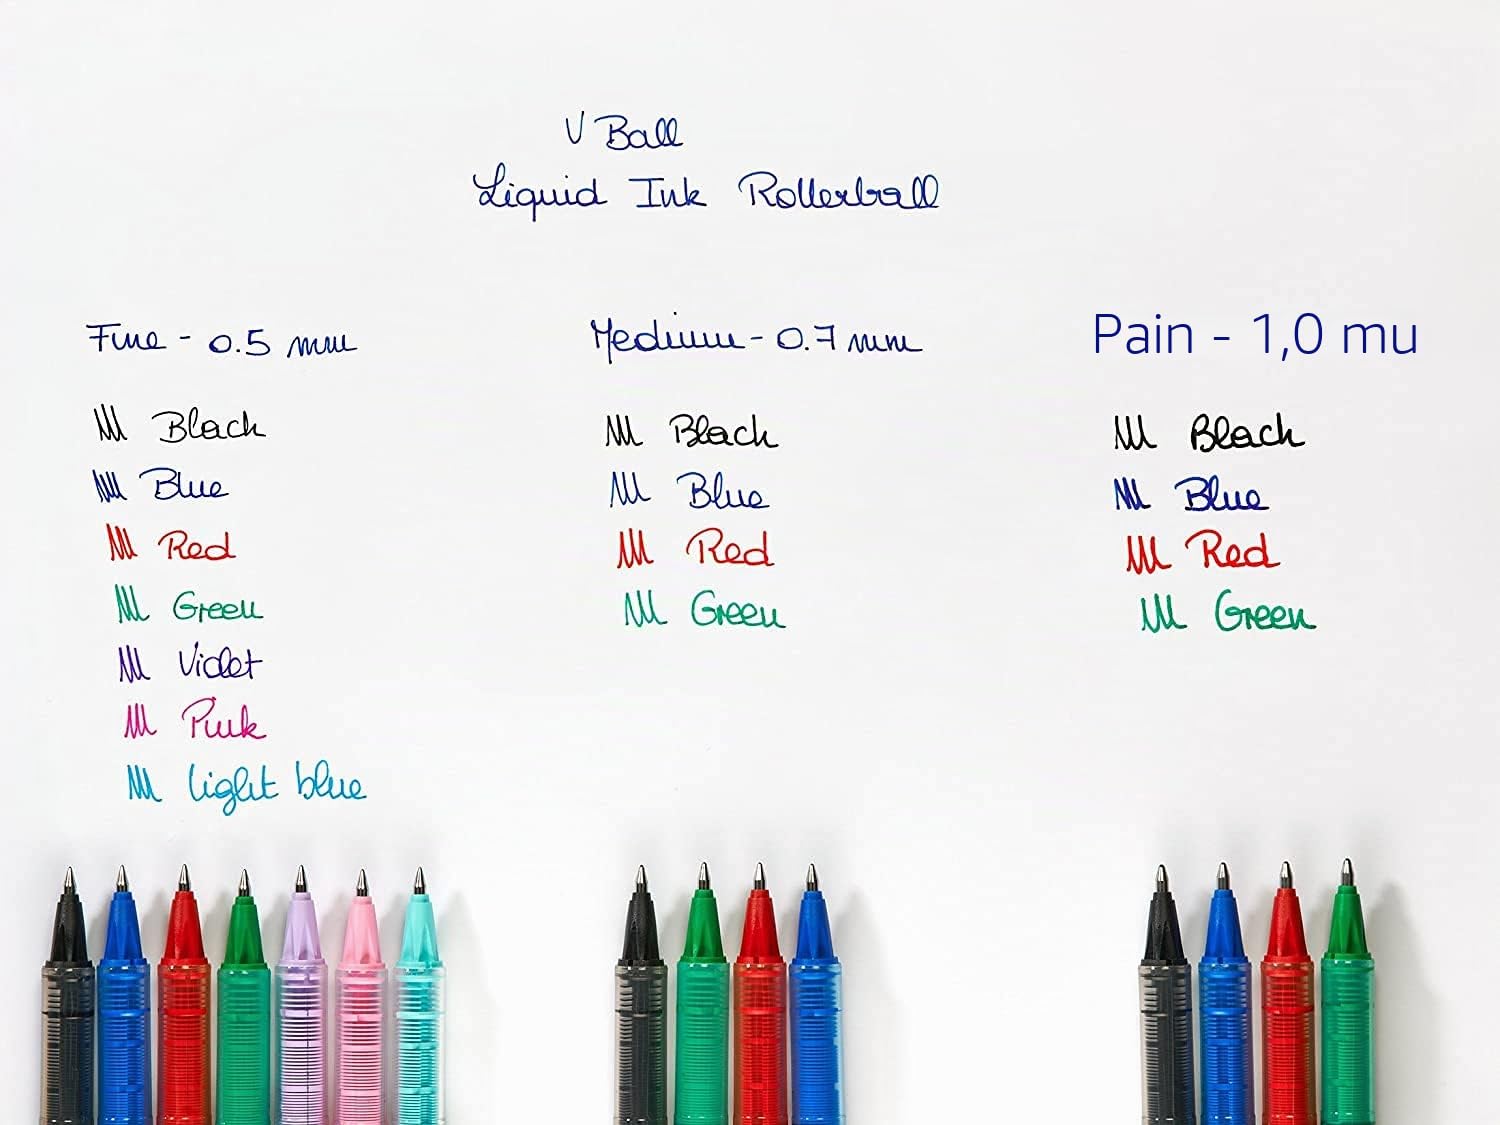 V Ball
Liquid Ink Rollerball
Fine - 0.5 mm
Black
Blue
Red
Green
Violet
Pink
light blue
Medium - 0.7 mm
Black
Blue
Red
Green
Pain - 1,0 mu
Black
Blue
Red
Green